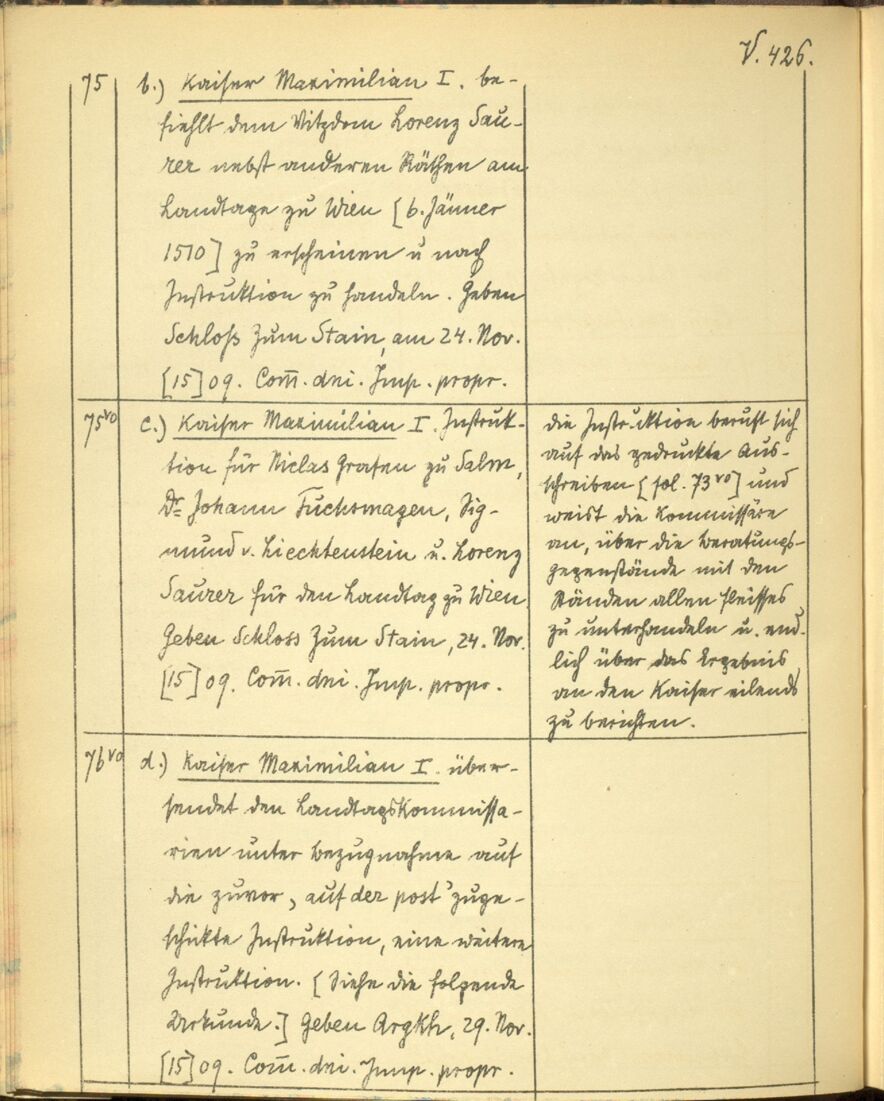 V. 426.
75 b.) Kaiser Maximilian I. be-
fiehlt dem Vitzdom Lorenz Sau-
rer nebst anderen Räthen am
Landtage zu Wien [6. Jänner
1510] zu erscheinen u nach
Instruktion zu handeln. Geben
Schloß zum Stain, am 24. Nov.
[15]09. Com̄. dni. Imp. propr.
75vo c.) Kaiser Maximilian I. Instruk-
tion für Niclas Grafen zu Salm,
Dr. Johann Fuchsmagen, Sig-
mund v. Liechtenstein u. Lorenz
Saurer für den Landtag zu Wien.
Geben Schloss zum Stain, 24. Nov.
[15]09. Com̄. dni. Imp. propr.
die Instruktion beruft sich
auf das gedruckte Aus-
schreiben [fol. 73vo] und
weist die Kommissäre
an, über die Beratungs-
gegenstände mit den
Ständen allen Fleisses
zu unterhandeln u. end-
lich über das Ergebnis
an den Kaiser eilends
zu berichten.
76vo d.) Kaiser Maximilian I. über-
sendet den Landtagskommissa-
rien unter Bezugnahme auf
die zuvor „auf der post“ zuge-
schikte Instruktion, eine weitere
Instruktion. [Siehe die folgende
Urkunde.] Geben Argkh, 29. Nov.
[15]09. Com̄. dni. Imp. propr.